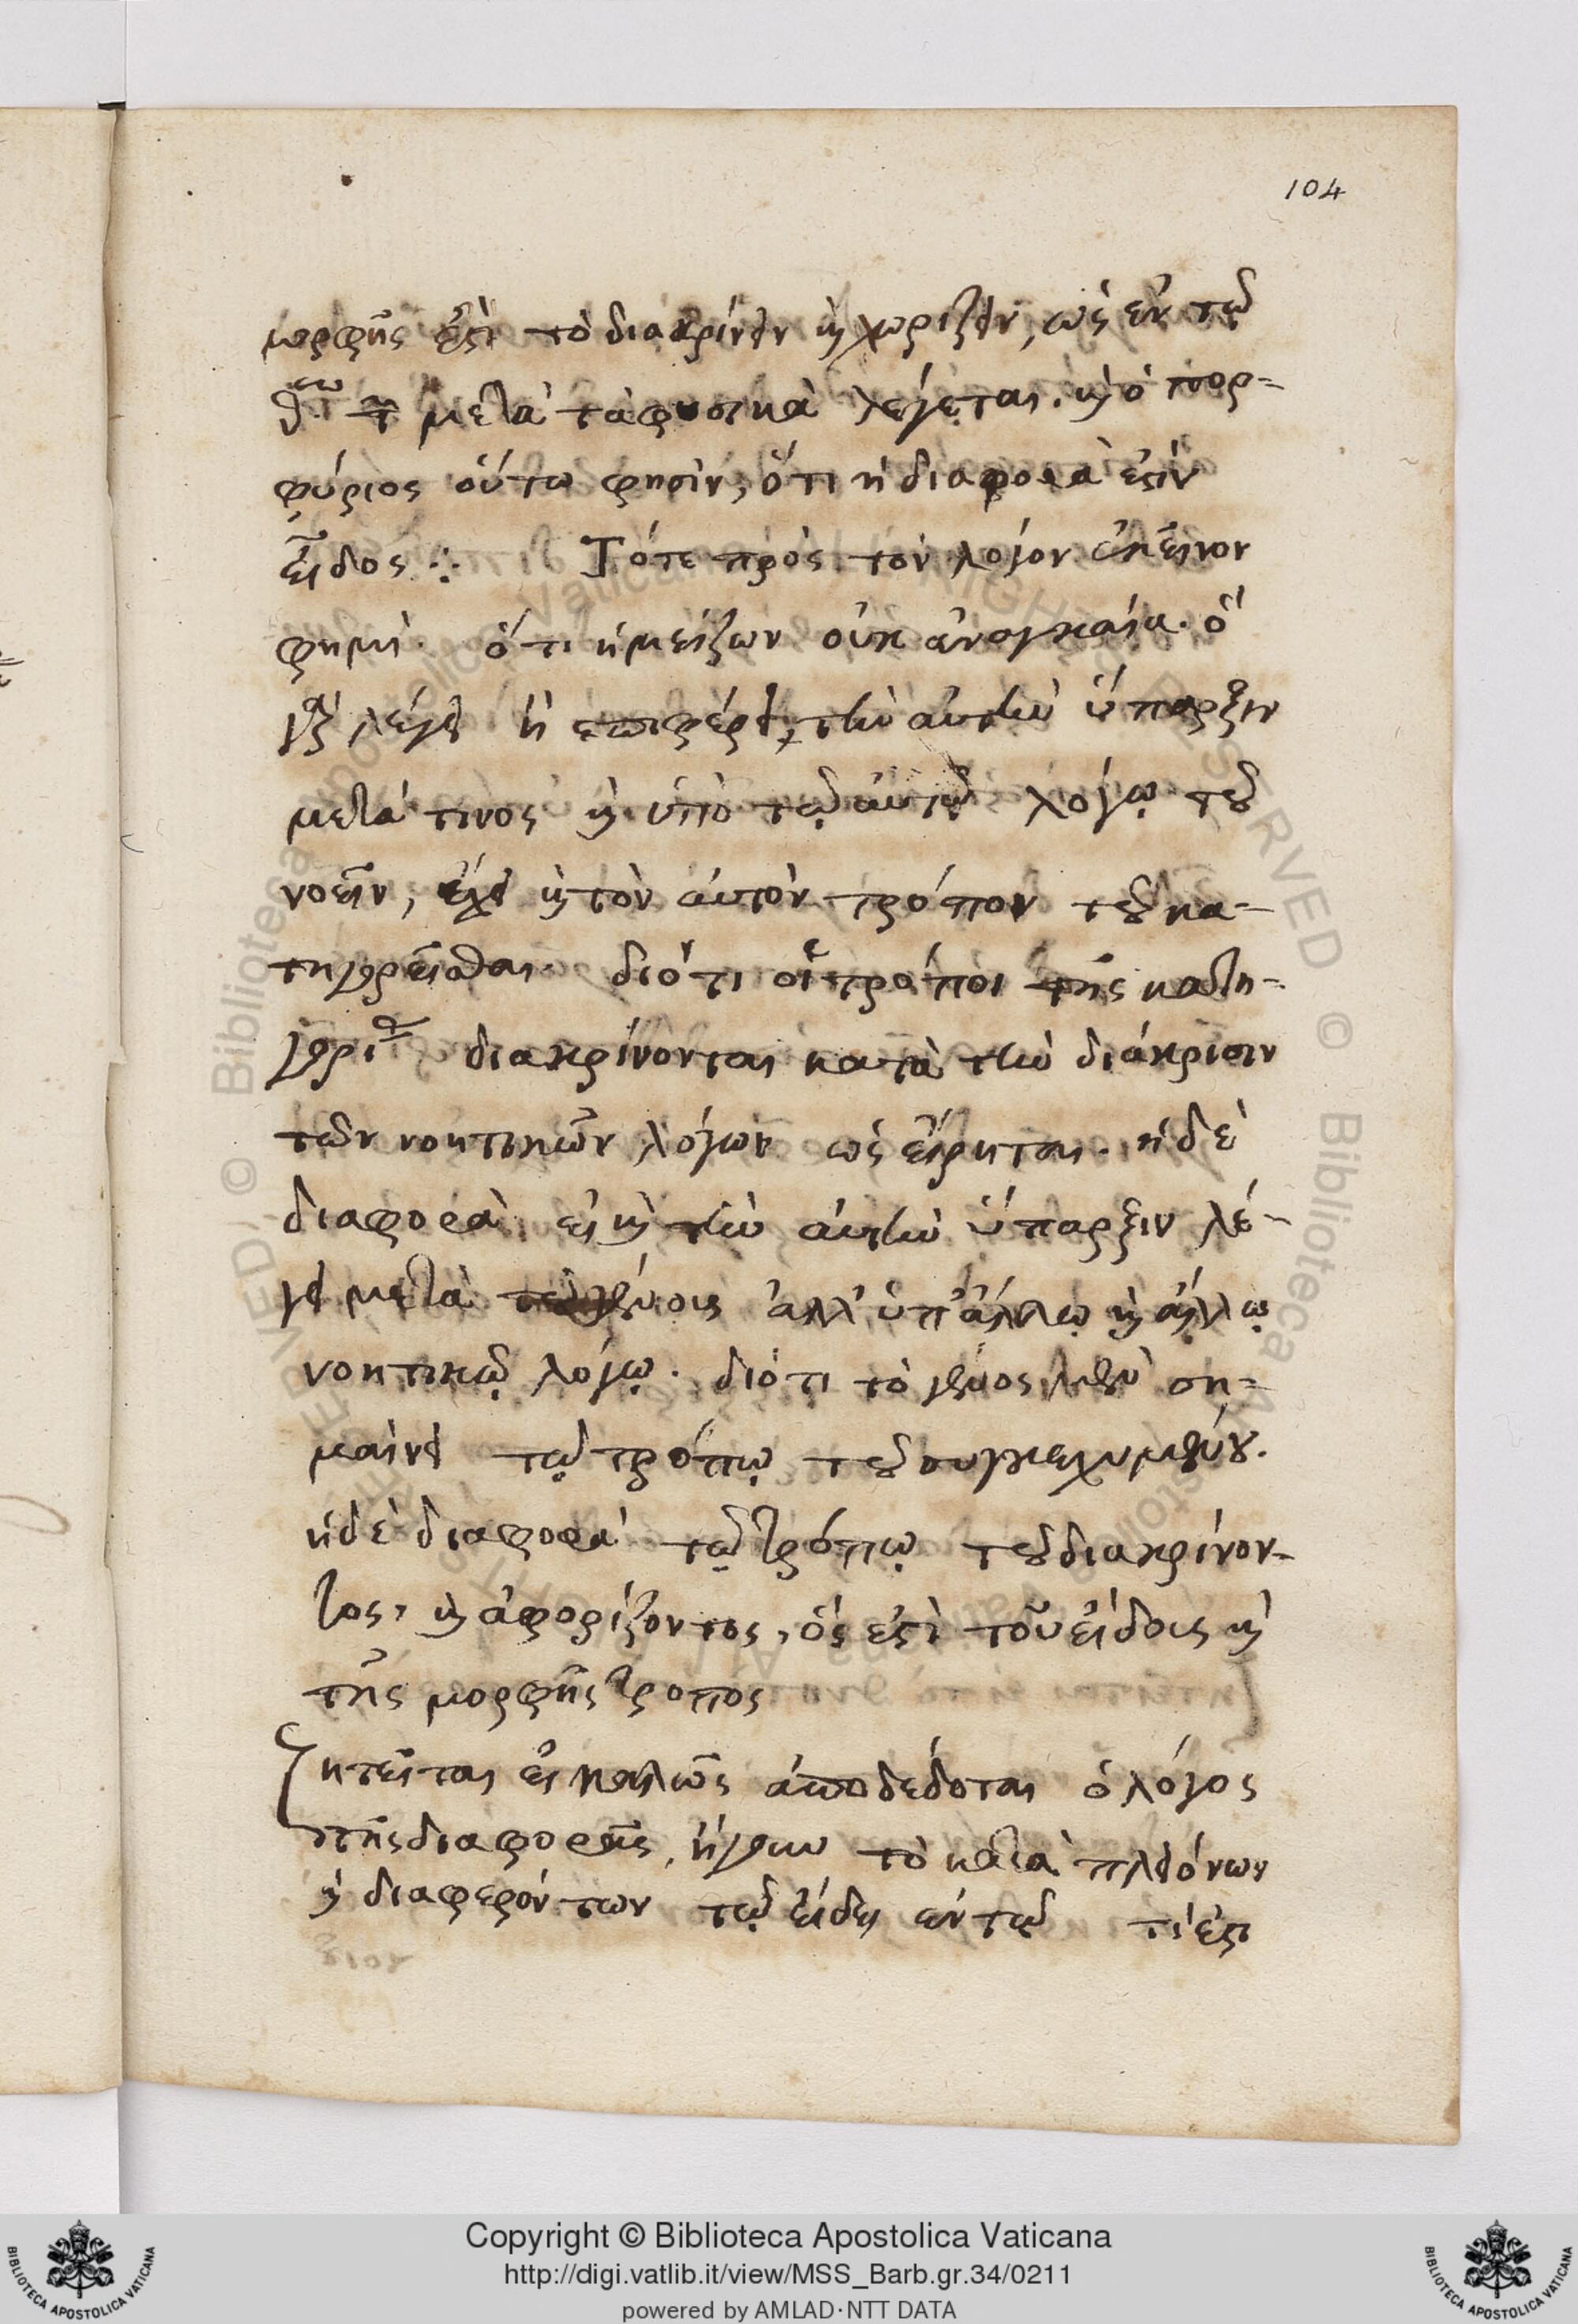 104
μορφῆς ἐστὶ τὸ διακρίνειν καὶ χωρίζειν, ὡς ἐν τῷ
μετὰ τὰ φυσικὰ λέγεται. καὶ ὁ πορ-
φύριος οὕτω φησὶν, ὅτι ἡ διαφορὰ ἐστὶν
εἶδος ∴ Τότε πρὸς τὸν λόγον ἐκεῖνον
φημὶ. ὅτι ἡ μείζων οὐκ ἀναγκαία. ὃ
γὰρ λέγει ἢ ἐπιφέρει τὴν αὐτὴν ὕπαρξιν
μετά τινος καὶ ὑπὸ τῷ αὐτῷ λόγῳ τοῦ
νοεῖν, ἔχει καὶ τὸν αὐτὸν τρόπον τοῦ κα-
τηγορεῖσθαι. διότι οἱ τρόποι τῆς κατη-
γορίας διακρίνονται κατὰ τὴν διάκρισιν
τῶν νοητικῶν λόγων ὡς εἴρηται. ἡ δὲ
διαφορὰ εἰ καὶ τὴν αὐτὴν ὕπαρξιν λέ-
γει μετὰ τοῦ γένους ἀλλ' ὑπ' ἄλλῳ καὶ ἄλλῳ
νοητικῷ λόγῳ. διότι τὸ γένος μὲν ση-
μαίνει τῷ τρόπῳ τοῦ συγκεχυμένου.
ἡ δὲ διαφορὰ τῷ τρόπῳ τοῦ διακρίνον-
τος, καὶ ἀφορίζοντος, ὅς ἐστὶ τοῦ εἴδους καὶ
τῆς μορφῆς τρόπος
Ζητεῖται εἰ καλῶς ἀποδέδοται ὁ λόγος
τῆς διαφορᾶς, ἤγουν τὸ κατὰ πλειόνων
καὶ διαφερόντων τῷ εἴδει ἐν τῷ τί ἐστι
Copyright © Biblioteca Apostolica Vaticana
http://digi.vatlib.it/view/MSS_Barb.gr.34/0211
powered by AMLAD·NTT DATA